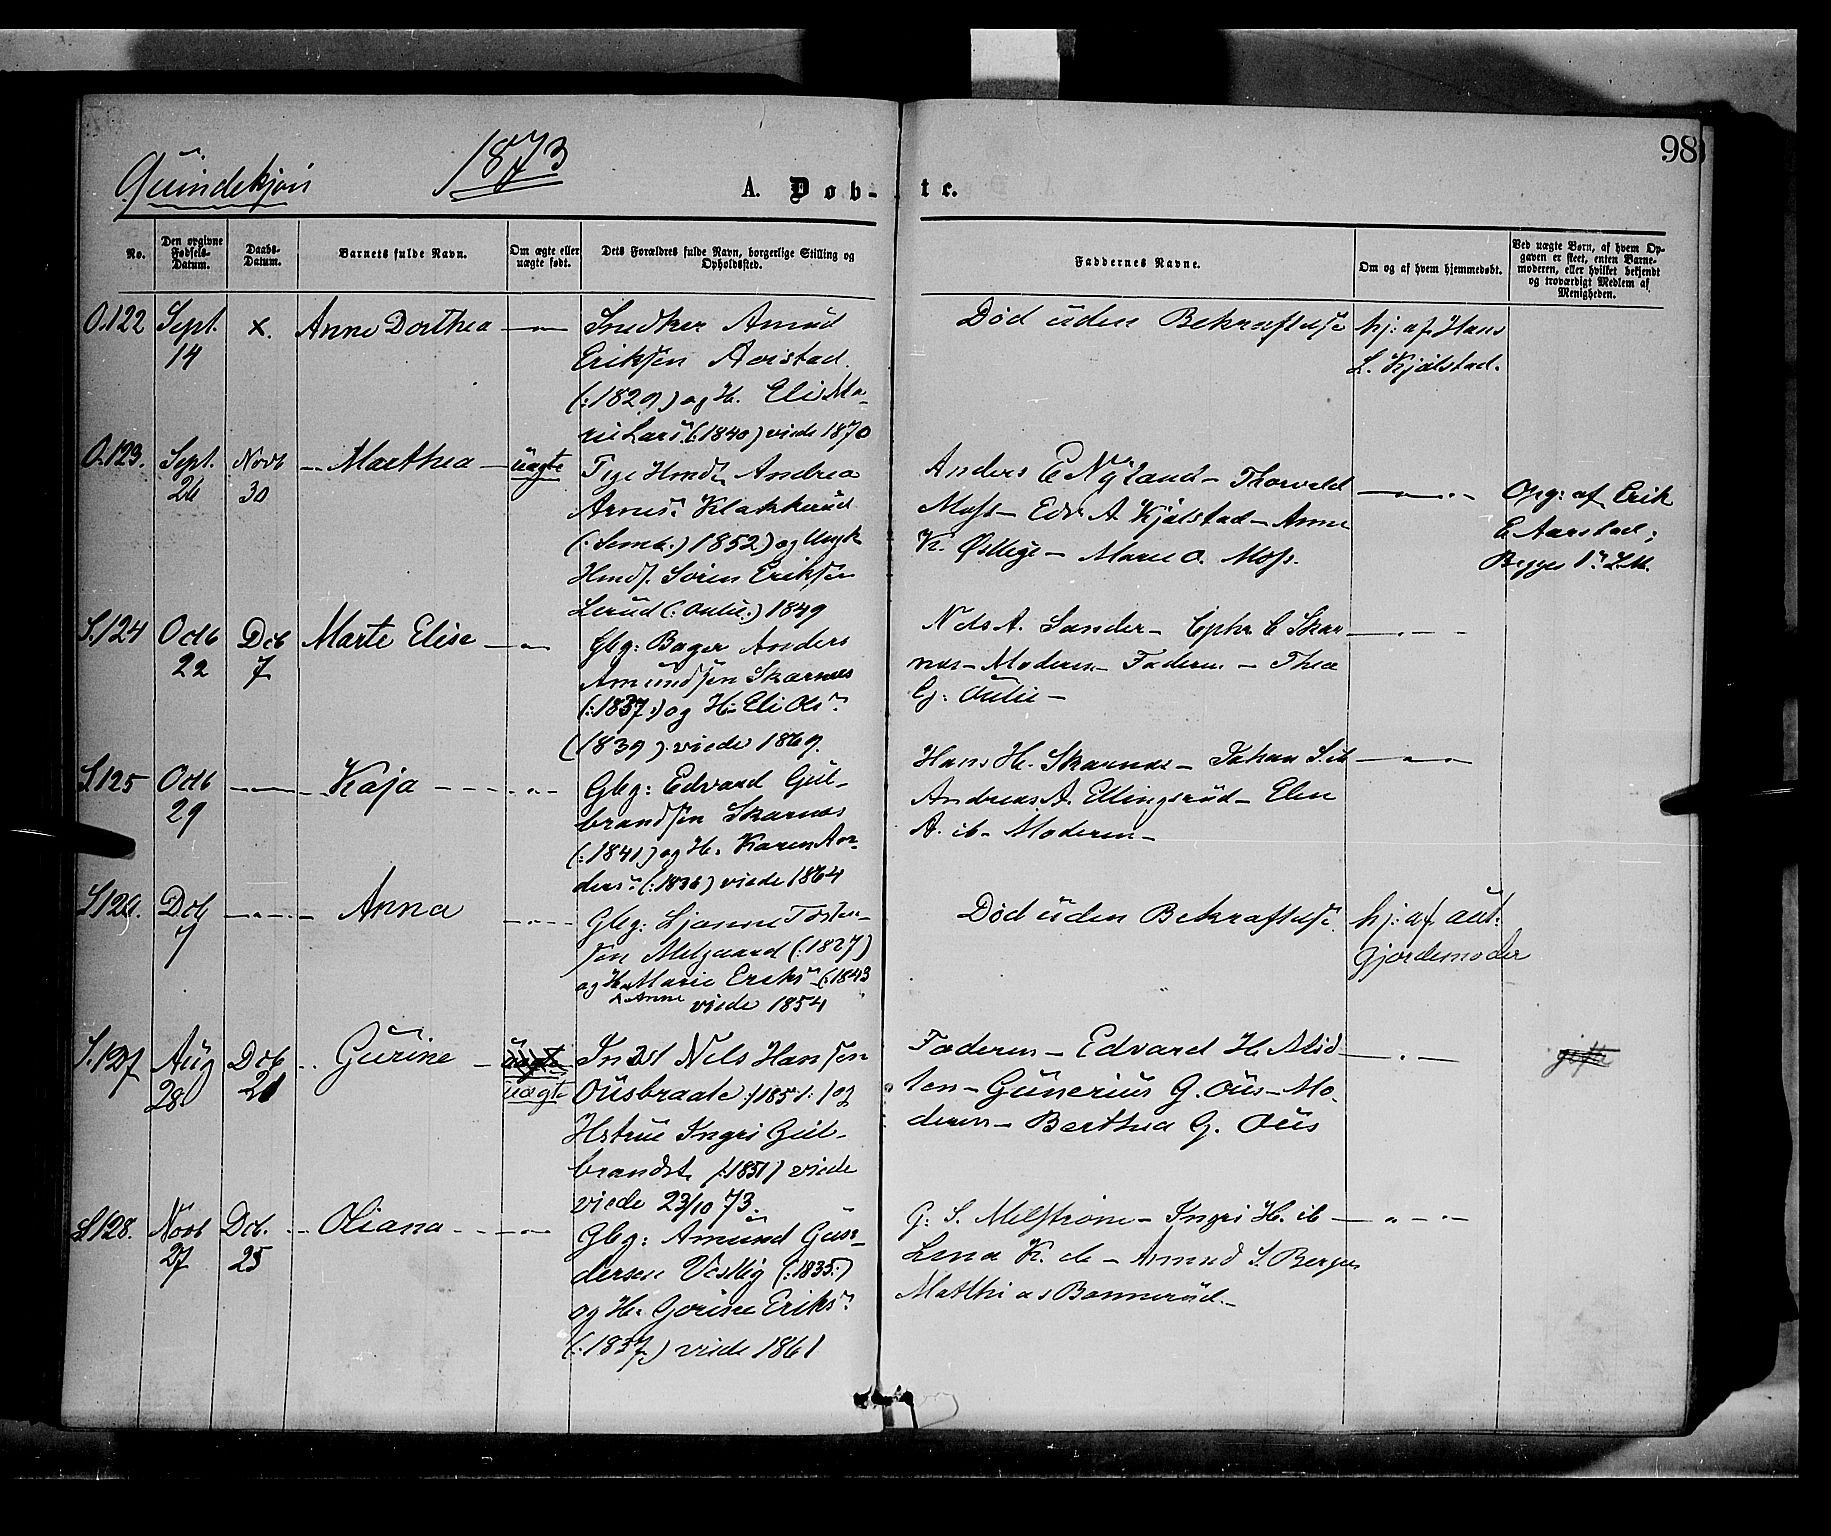 98
Quindekjøn
1873
A. Døbte.
No.
Den opgivne Fødsels-Datum.
Daabs-Datum.
Barnets fulde Navn.
Om ægte eller uægte født.
Dets Forældres fulde Navn, borgerlige Stilling og Opholdssted.
Faddernes Navne.
Om og af hvem hjemmedøbt.
Ved uægte Børn, af hvem Opgaven er skeet, enten Barnemoderen, eller hvilket bekjendt og troværdigt Medlem af Menigheden.
O.122 Sept. 14 x. Anne Dorthea —
Snedker Amund
Eriksen Aarstad
(:1829) og H. Eli Ma-
rie Lars. (:1840) viede 1870
Død uden Bekræftelse
hj: af Hans
L. Kjølstad.
O.123. Sept. 26 Novb 30 Marthea uægte
Pige Andrea
Arnesn Klakkerud
1852) og Ungk
Søren Eriksen
Lerud 1849
Anders E Nyland – Thorvald
Moss – Edv A Kjølstad – Anne
K. – Marie O. Moss.
Opg: af Erik
E Aarstad;
Begges 1n L.M.
S.124 Octb 22 Dcb 7 Marte Elise —
Gbg: Bager Anders
Amundsen Skarnæs
(:1837:) og H: Eli Olsn
(1839) viede 1869.
Nels A. Sander – E Skar-
næs – Moderen – Faderen – Thea
S125 Octb 29 — Kaja —
Gbg: Edvard Gul-
brandsen Skarnæs
(:1841) og H: Karen An-
dersn (:1836) viede 1864
Hans H. Skarnæs – Johan S ib
Andreas A. Ellingsrud – Elen
A. ib – Moderen –
Dcb 7 — Anna —
Gbg: Torsten-
sen Melgaard (:1827)
og H: Marie Eriksn (:1843
Anne viede 1854
Død uden Bekræftelse
hj: af aut:
Gjordemoder
S.127 Aug 28 Dcb 21 Gurine uægte
Indst Nels Hansen
Ousbraate (:1851:) og
Hstrue Ingri Gul-
brandst (:1851) viede
viede 23/10 73.
Faderen – Edvard H.
Gunerius G. Ous – Mo-
deren – Berthea G. Ous
gift
S128. Novb 27 Dcb. 25 Oliana —
Gbg: Amund Gun-
dersen Vestlig (:1835:)
og H: Gorine Eriksn
(:1837) viede 1861
G: S. Melstrøm – Ingri H. ib
Lena K. ib – Amund S. Berger
Mathias Bonnerud –